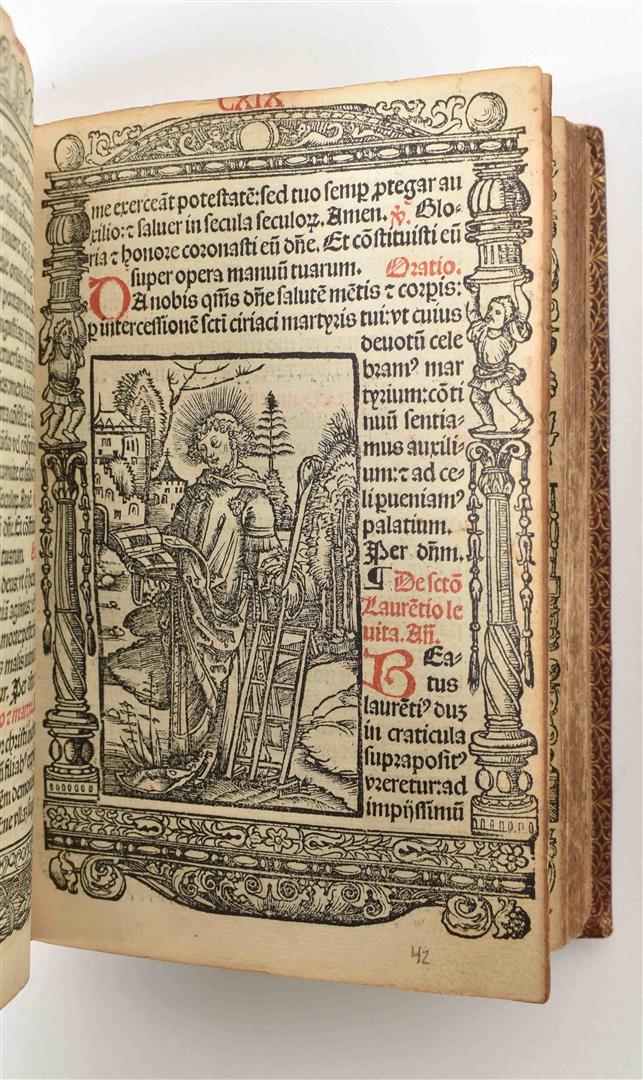 CXIX
me exerceāt potestatē: sed tuo semꝑ ꝓtegar au
xilio: ⁊ saluer in secula seculoꝝ. Amen. ℣. Glo-
ria ⁊ honore coronasti eū dn̄e. Et cōstituisti eū
super opera manuū tuarum. Oratio.
DA nobis q̄ms dn̄e salutē mētis ⁊ corp̄is:
ꝑ intercessionē sct̄i ciriaci martyris tui: vt cuius
deuotū cele
bramꝰ mar
tyrium: cōti
nuū sentia-
mus auxili-
um: ⁊ ad ce-
li ꝑueniamꝰ
palatium.
Per dn̄m.
¶ De sctō
Laurētio le
uita. Añ.
BEa-
tus
laurētiꝰ duꝫ
in craticula
supraposit⁹
vreretur: ad
impijssimū
42